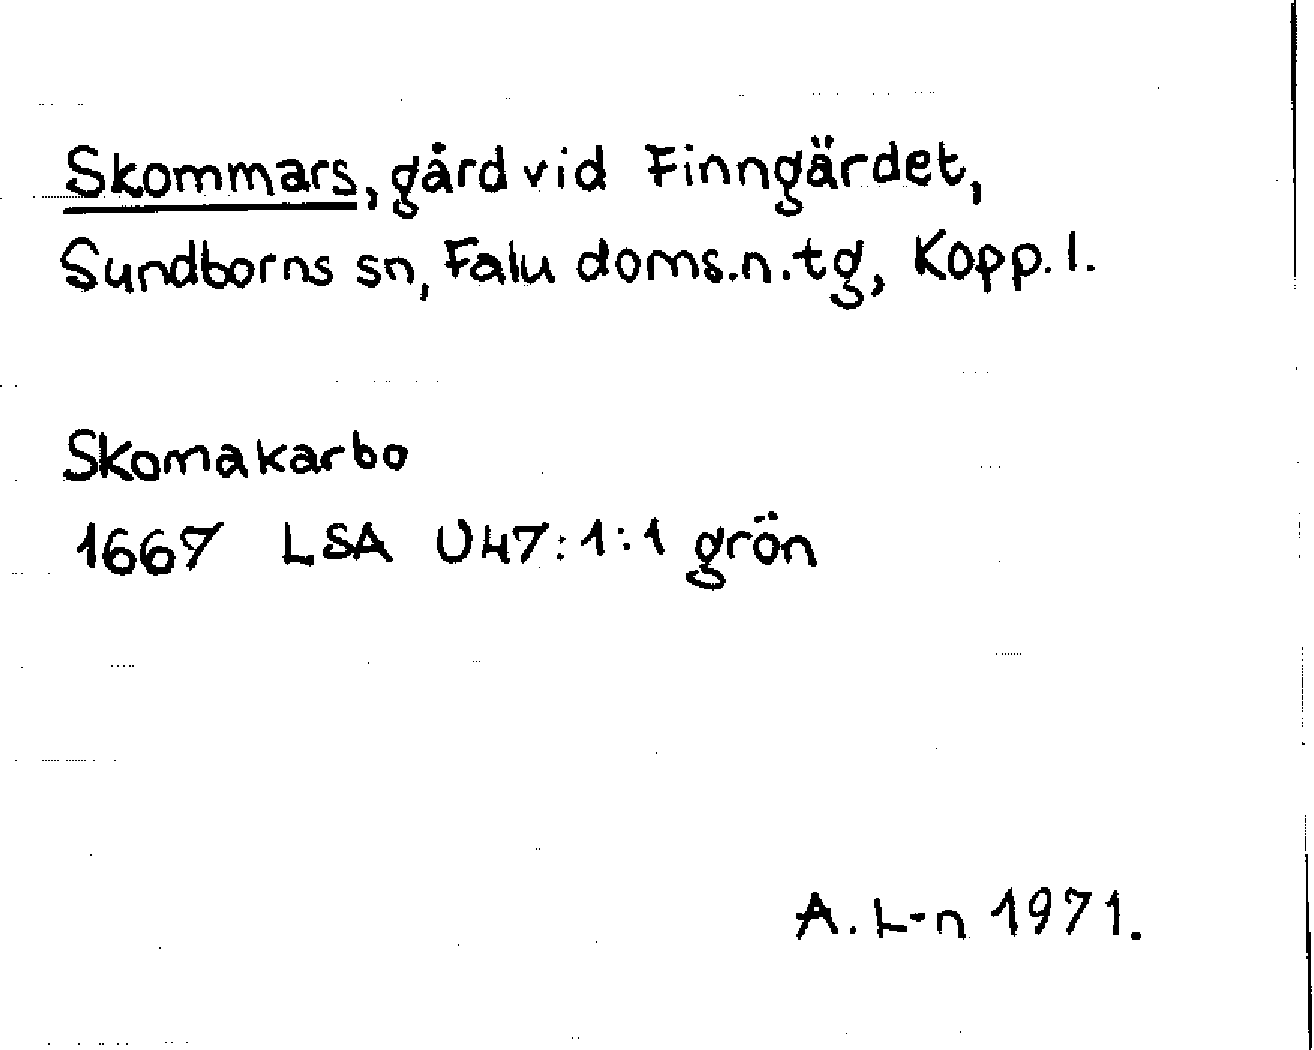 Skommars, gård vid Finngärdet,
Sundborns sn, Falu doms.n.tg, Kopp. l.
Skomakarbo
1667 LSA U47:1:1 grön
A. L-n 1971.